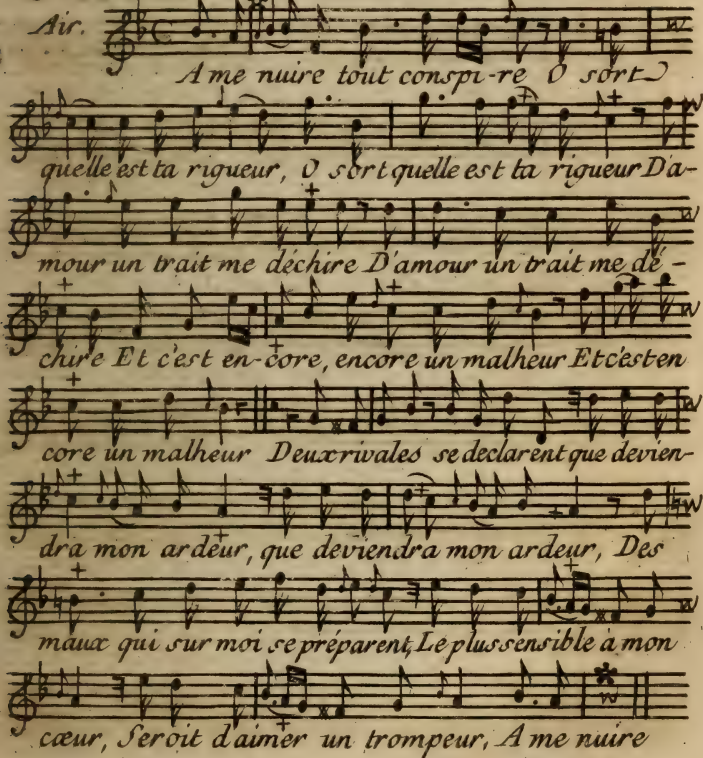 Air.
A me nuire tout conspi-re O sort
quelle est ta rigueur, O sort quelle est ta rigueur D'a-
mour un trait me déchire D'amour un trait me dé-
chire Et c'est en-core, encore un malheur Et c'est en
core un malheur Deux rivales se declarent que devien-
dra mon ardeur, que deviendra mon ardeur, Des
maux qui sur moi se préparent, Le plus sensible à mon
cœur, Seroit d'aimer un trompeur, A me nuire